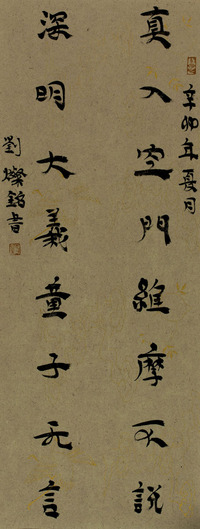 真入空門維摩不説
辛卯年夏月
深明大義童子无言
劉燦銘書